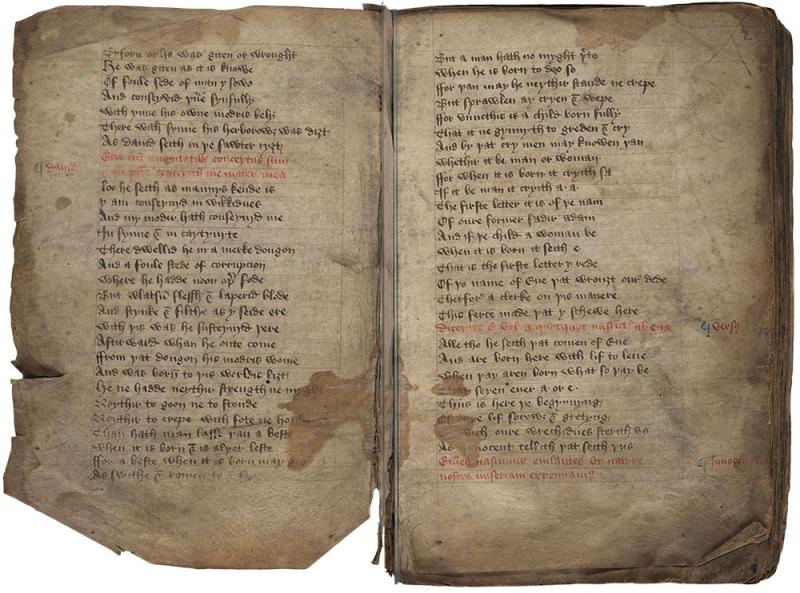 Byforn or he was geten or wrought
He was geten as it is knowe
Of foule sede of man y sowe
And conseyvid ynne synfully
With ynne his owne modris bely
There with synne his herborwe was diȝt
As david seith in þe sawter ryȝt
¶ david
Ecce eni iniquitatibȝ conceptus sum
⁊ in pctis concepit me mater mea
Loo he seith as mannys kende is
Y am conseyvid in wikkidnes
And my modir hath conseyvid me
In synne ⁊ in caytyvyte
There dwellid he in a merke dongon
And a foule stede of corrupcion
Where he hadde noon oþr fode
But wlatsū flessh ⁊ laperid blode
And stynke ⁊ filthe as y seide ere
With þis was he susteynid þere
Aftirward whan he oute come
ffrom þat dongon his modris wome
And was born to þis worldis liȝt
he ne hadde neythir strength ne might
Neythir to goon ne to stonde
Neythir to crepe with fote ne honde
Than hath man lasse þan a beste
when it is born ⁊ is alþer leste
ffor a beste when it is born may
As swithe ⁊ romen to
2
But a man hath no myght þrto
when he is born to doo so
ffor þan may he neythir stande ne crepe
But sprawlen ay cryen ⁊ wepe
ffor unnethis is a child born fully
That it ne gynnyth to greden ⁊ cry
And by þat cry men may knowen þan
whethir it be man or woman
ffor when it is born it cryith sa
If it be man it cryith a a
The firste letter it is of þe nam
Of oure former fadir adam
And if þe child a woman be
when it is born it seith e
That is the firste letter y rede
Of þe name of Eve þat wrouȝt our dede
Therfor a clerke on þis manere
This ferce made þat y schewe here
Dicentes e vel a quotquot nascūtr ab eua
¶ versꝰ
Alle tho he seith þat comen of Eue
And are born here with lif to leue
when þay aren born what so þay be
That seyen ever a or e
Thus is here þe begynnyng
oure lif sorowe ⁊ gretyng
oure wrechidnes sterith us
As Innocent tellith þat seith þus
Omnes nascimur eiulantes vt nature
¶ Innocen
nostre miseriam exprimamꝰ